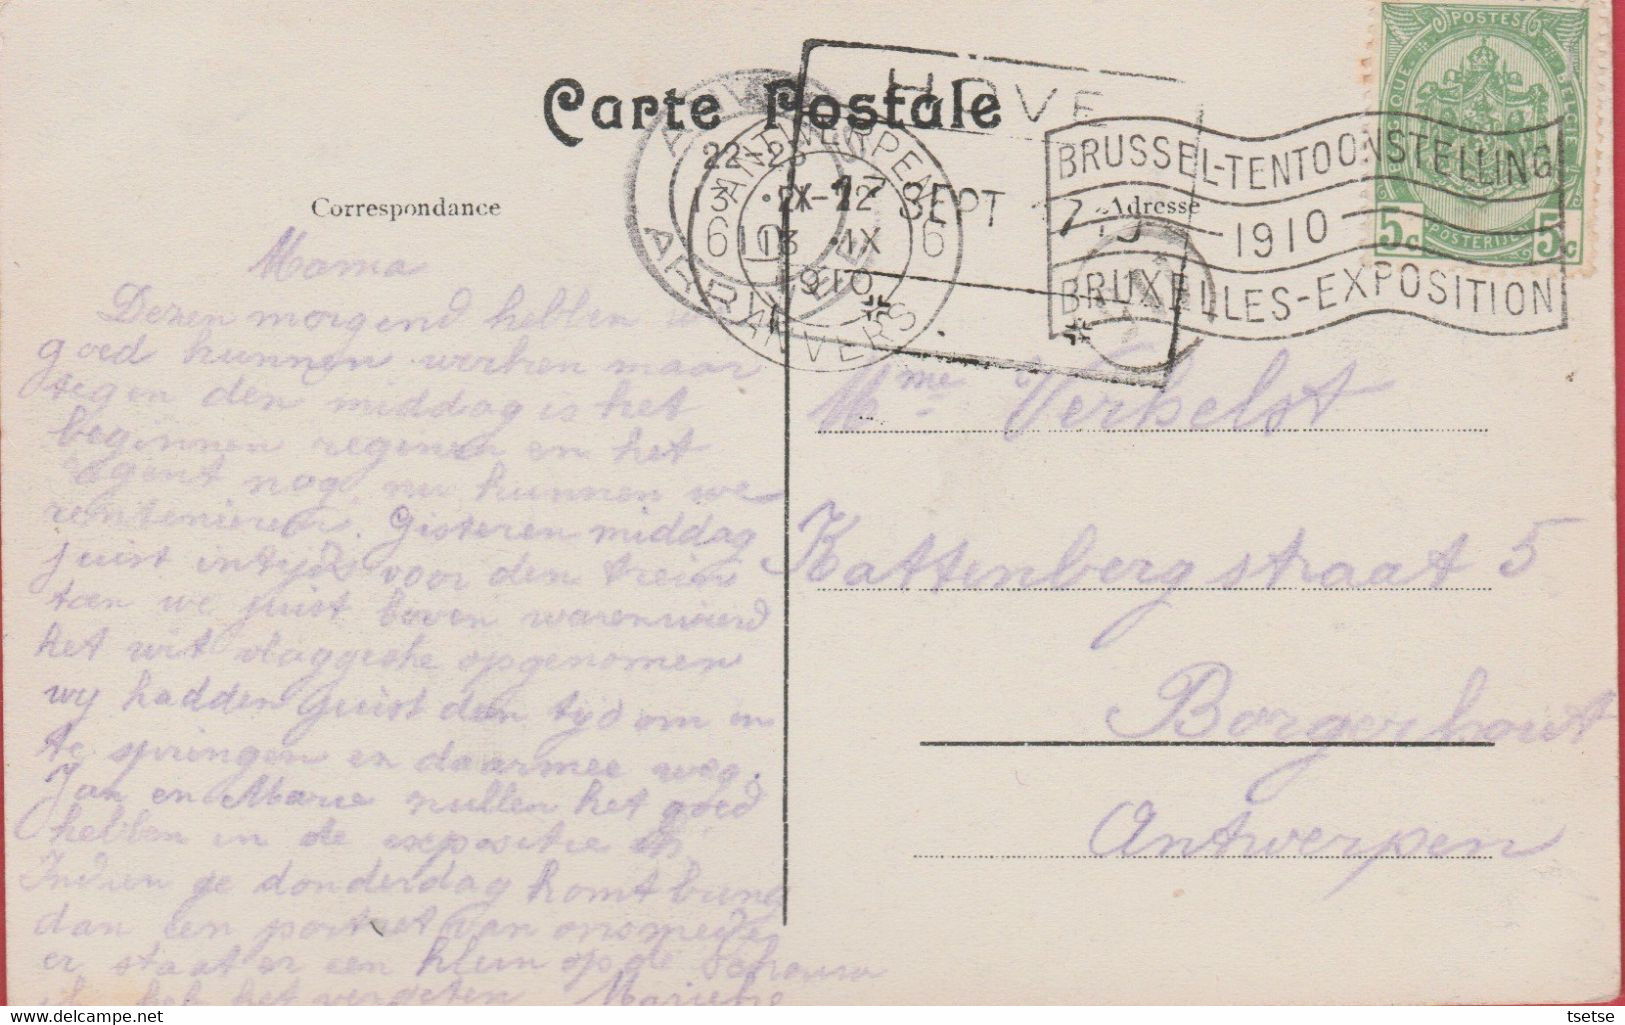 Carte Postale
Correspondance
Adresse
HOVE
17 SEPT
ANTWERPEN
ANVERS
22-23
13 IX
1910
6 6
BRUSSEL-TENTOONSTELLING
1910
BRUXELLES-EXPOSITION
POSTES
BELGIQUE BELGIE
POSTERIJEN
5c 5c
Mama
Dezen morgend hebben we
goed kunnen werken maar
tegen den middag is het
beginnen regenen en het
regent nog, nu kunnen we
rentenieren. Gisteren middag
juist intyds voor den trein
toen we juist boven waren wierd
het wit vlaggeske opgenomen
wy hadden juist den tyd om in
te springen en daarmee weg.
Jan en Marie zullen het goed
hebben in de expositie
Indien ge donderdag komt breng
dan een portret van ons mede
er staat er een klein op de schouw
ik heb het vergeten Marieke
Mme Verhelst
Kattenbergstraat 5
Borgerhout
Antwerpen
tsetse